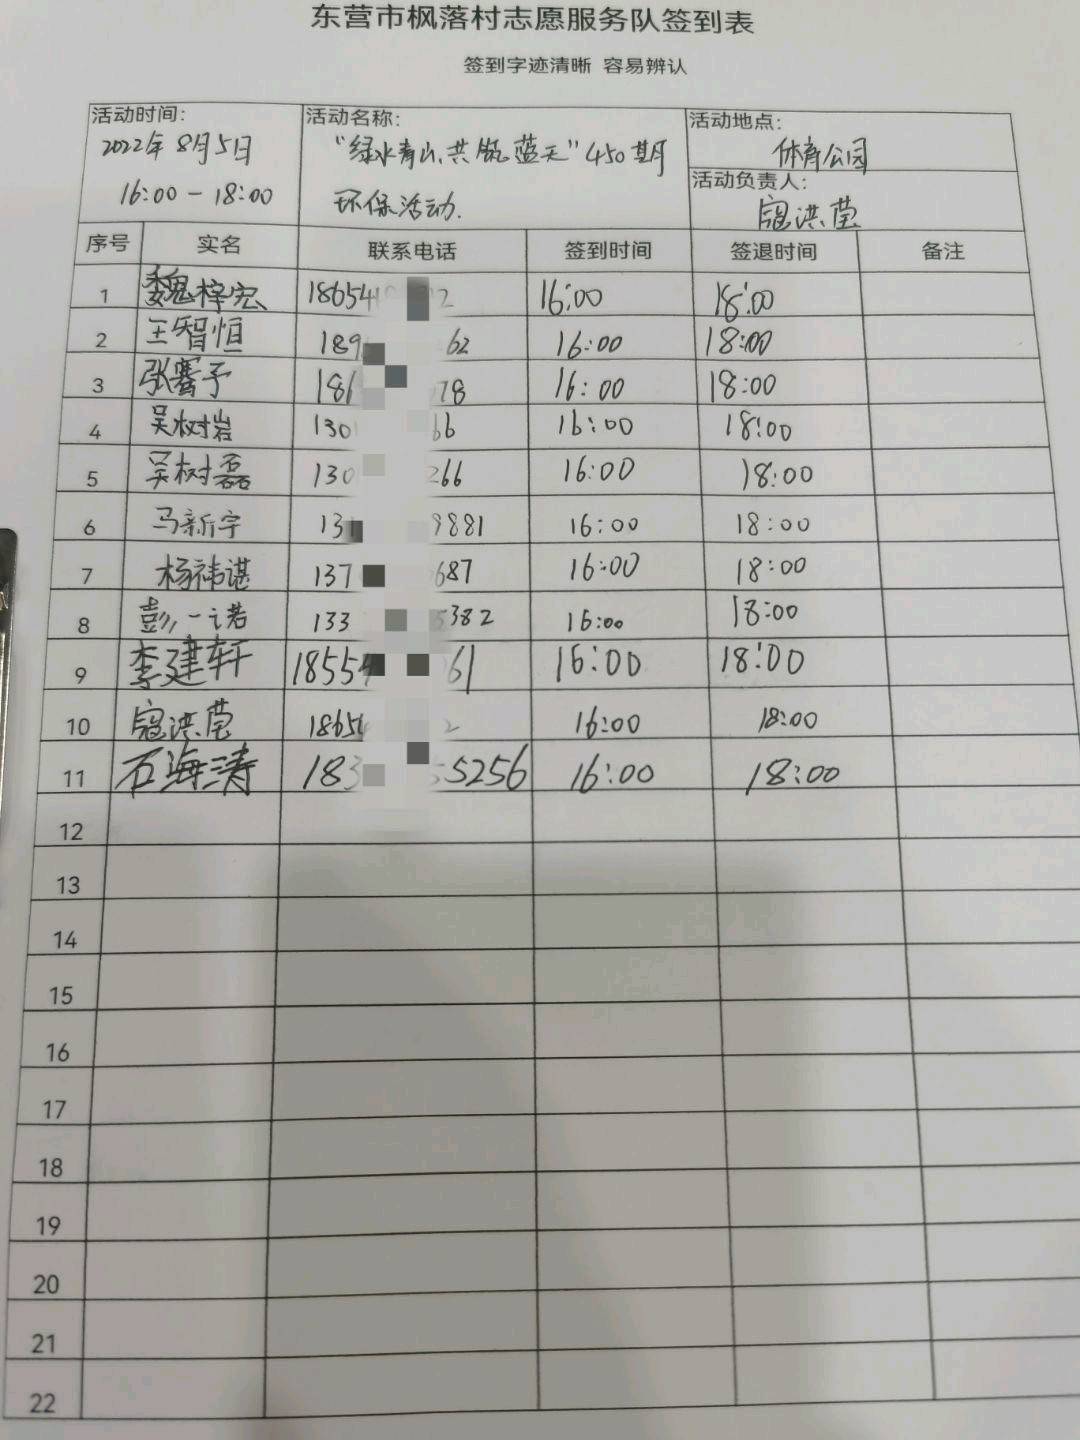 东营市枫落村志愿服务队签到表
签到字迹清晰 容易辨认
活动时间: 2022年8月5日 16:00-18:00
活动名称: "绿水青山、共筑蓝天"450期 环保活动.
活动地点: 体育公园
活动负责人: 寇洪莹
序号 实名 联系电话 签到时间 签退时间 备注
1 魏梓宏 18654 2 16:00 18:00
2 王智恒 189 62 16:00 18:00
3 张謇予 186 78 16:00 18:00
4 吴树岩 130 66 16:00 18:00
5 吴树磊 130 266 16:00 18:00
6 马新宇 131 9881 16:00 18:00
7 杨祎谌 137 687 16:00 18:00
8 彭一诺 133 5382 16:00 18:00
9 李建轩 18554 61 16:00 18:00
10 寇洪莹 18654 2 16:00 18:00
11 石海涛 183 5256 16:00 18:00
12
13
14
15
16
17
18
19
20
21
22